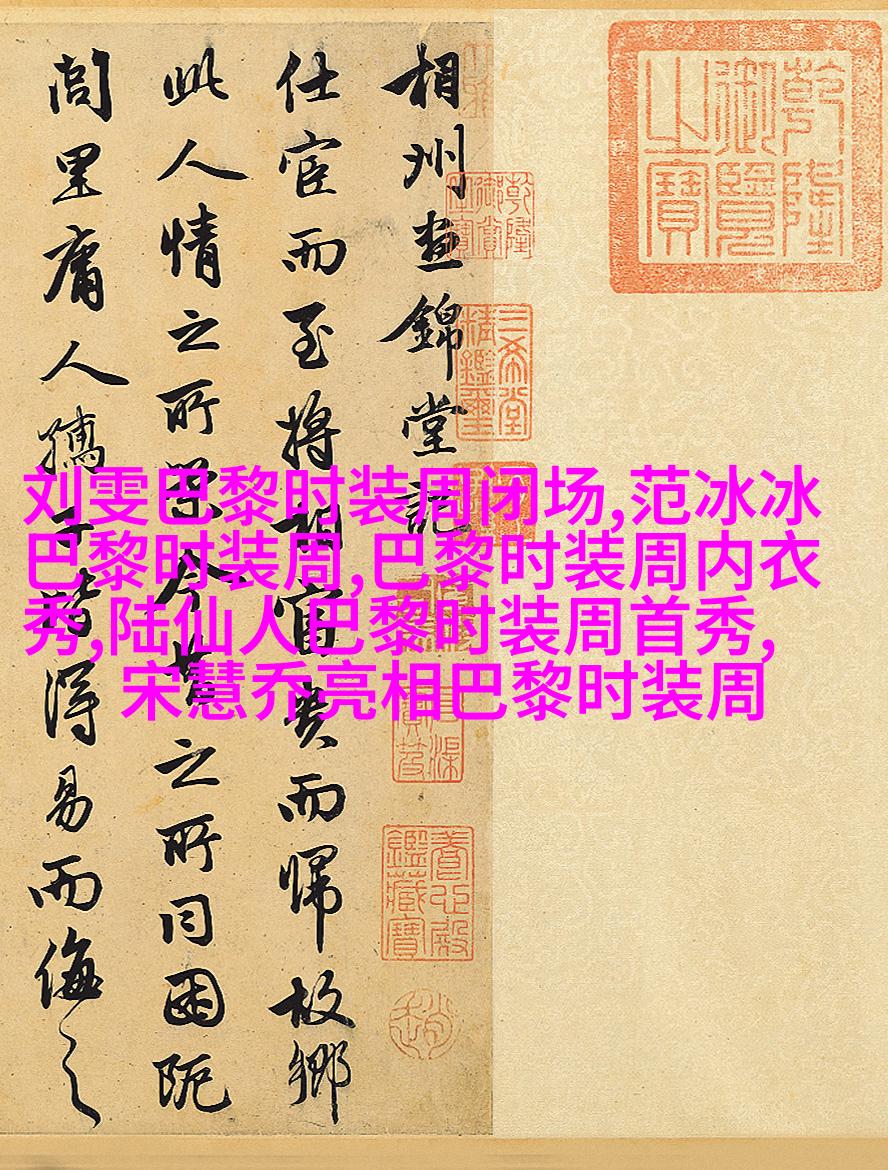 乾隆御覽之寶
相州晝錦堂記
仕宦而至將相富貴而歸故鄉
此人情之所榮今昔之所同困阨
閭里庸人孺子皆得易而侮之
三希堂精鑑璽
養心殿鑑藏寶
刘雯巴黎时装周闭场,范冰冰
巴黎时装周,巴黎时装周内衣
秀,陆仙人巴黎时装周首秀,
宋慧乔亮相巴黎时装周